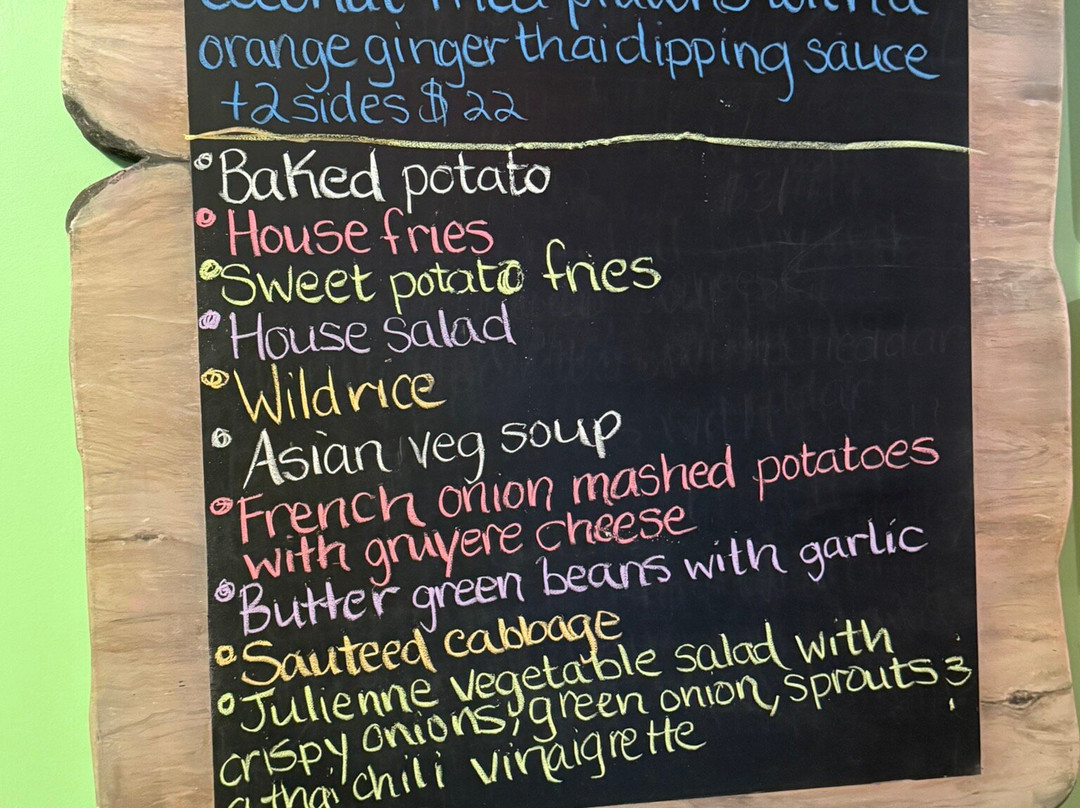 coconut fried prawns with a
orange ginger thai dipping sauce
+2 sides $22
• Baked potato
• House fries
• Sweet potato fries
• House salad
• Wild rice
• Asian veg soup
• French onion mashed potatoes
with gruyere cheese
• Butter green beans with garlic
• Sauteed cabbage
• Julienne vegetable salad with
crispy onions, green onion, sprouts &
a thai chili vinaigrette